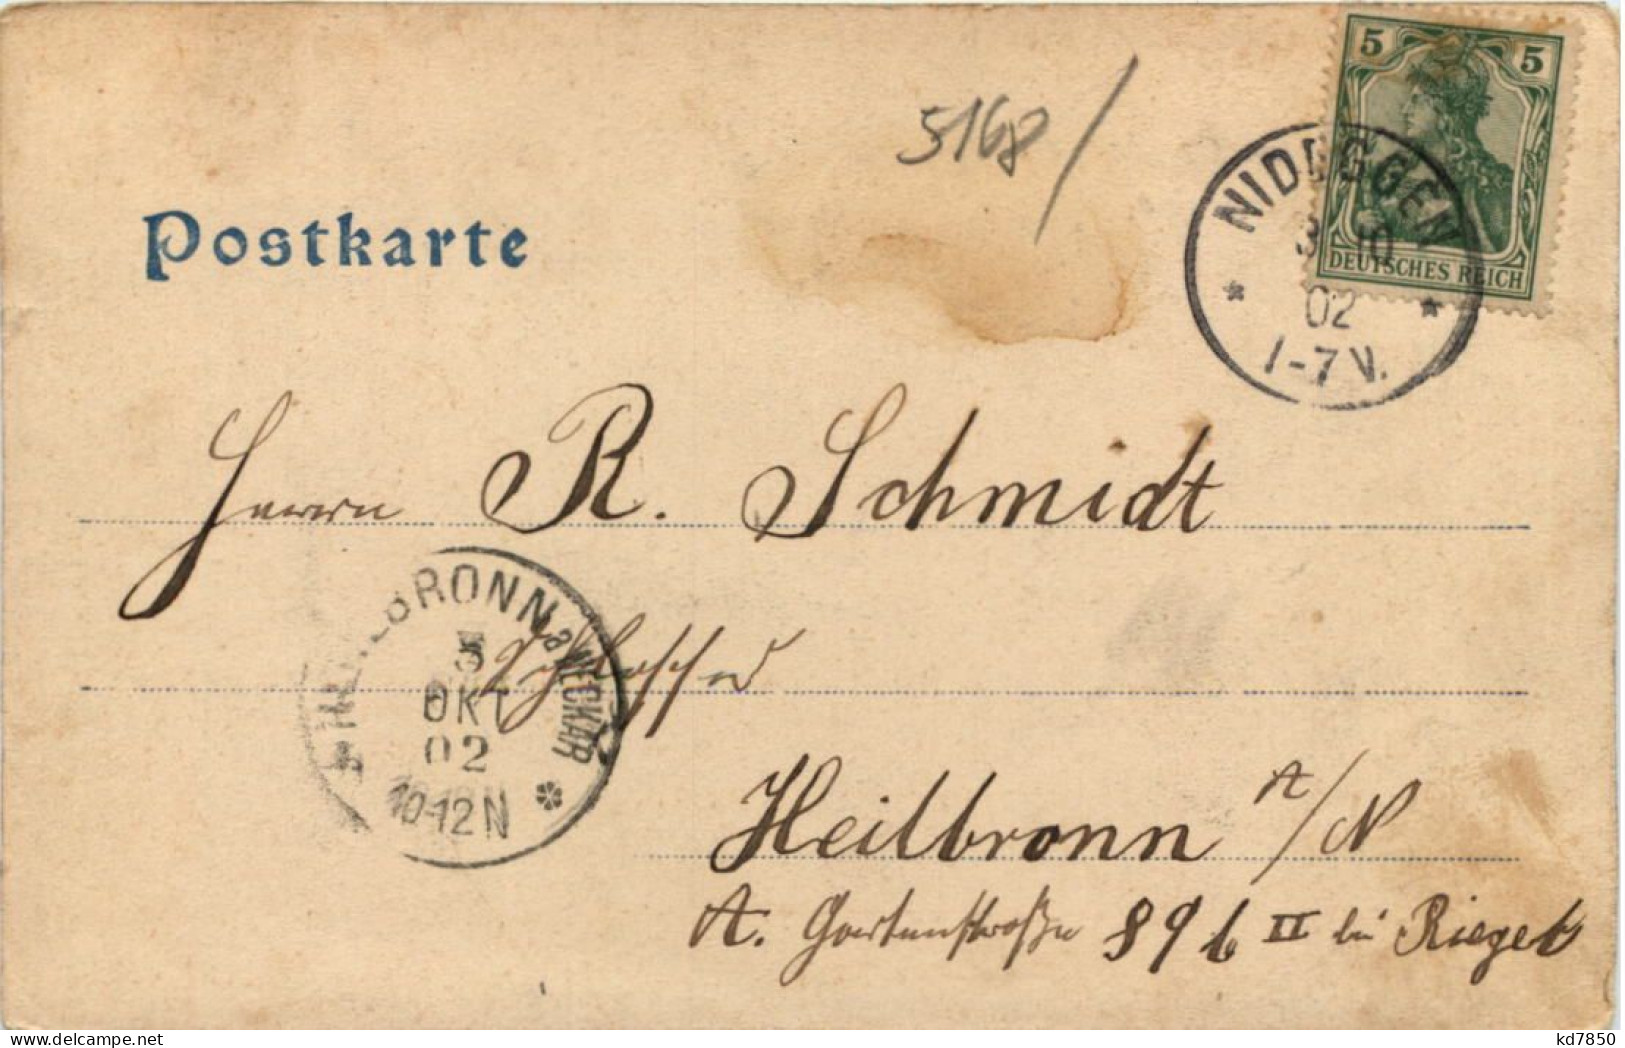 5168/
5 5
DEUTSCHES REICH
NIDEGGEN
3 10
02
1-7 V.
Postkarte
Herrn R. Schmidt
Schlosser
HEILBRONN a NECKAR
3
OKT
02
10-12 N
Heilbronn A/N
A. Gartenstraße 89 b II bei Rieget
kd7850